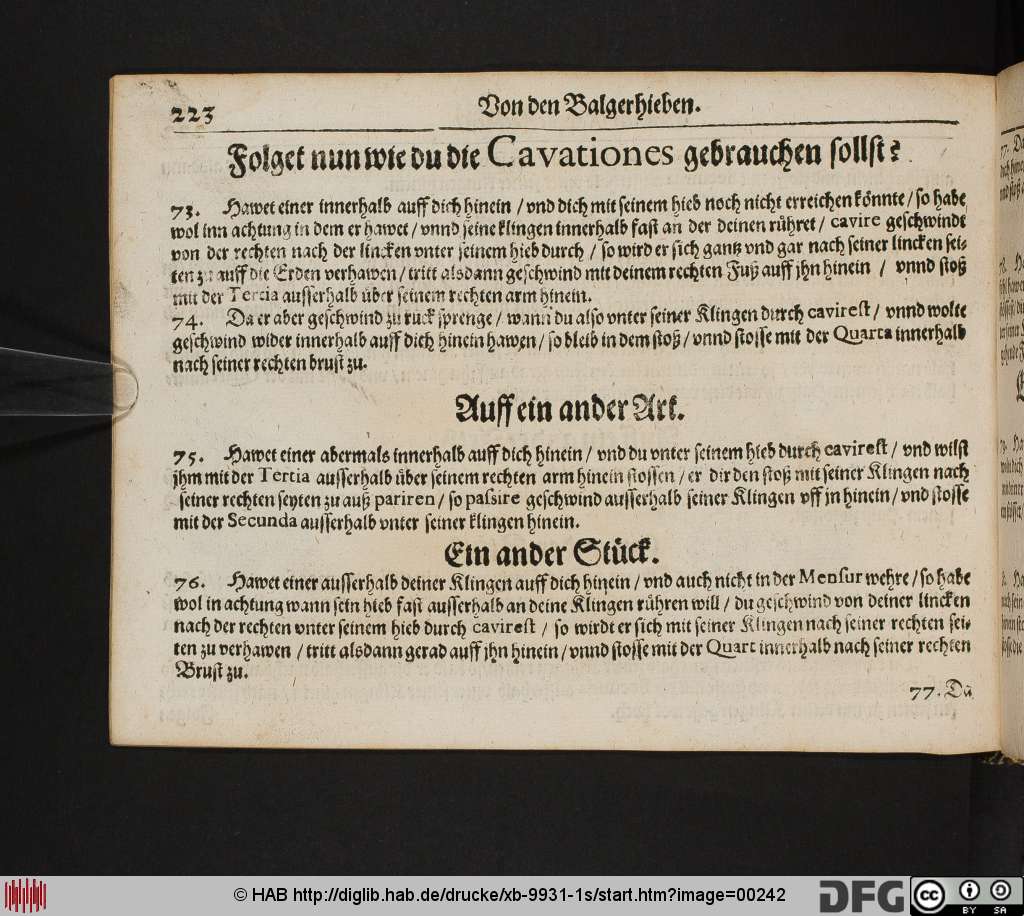 223
Von den Balgerhieben.
Folget nun wie du die Cavationes gebrauchen sollst?
73. Hawet einer innerhalb auff dich hinein / vnd dich mit seinem hieb noch nicht erreichen könnte / so habe
wol inn achtung in dem er hawet / vnnd seine klingen innerhalb fast an der deinen rühret / cavire geschwindt
von der rechten nach der lincken vnter seinem hieb durch / so wird er sich gantz vnd gar nach seiner lincken sei-
ten zu auff die Erden verhawen / tritt alsdann geschwind mit deinem rechten Fuß auff jhn hinein / vnnd stoß
mit der Tertia ausserhalb über seinem rechten arm hinein.
74. Da er aber geschwind zu rück sprenge / wann du also vnter seiner Klingen durch cavirest / vnnd wolte
geschwind wider innerhalb auff dich hinein hawen / so bleib in dem stoß / vnnd stosse mit der Quarta innerhalb
nach seiner rechten brust zu.
Auff ein ander Art.
75. Hawet einer abermals innerhalb auff dich hinein / vnd du vnter seinem hieb durch cavirest / vnd wilst
jhm mit der Tertia ausserhalb über seinem rechten arm hinein stossen / er dir den stoß mit seiner Klingen nach
seiner rechten seyten zu auß pariren / so passire geschwind ausserhalb seiner Klingen vff jn hinein / vnd stosse
mit der Secunda ausserhalb vnter seiner klingen hinein.
Ein ander Stück.
76. Hawet einer ausserhalb deiner Klingen auff dich hinein / vnd auch nicht in der Mensur wehre / so habe
wol in achtung wann sein hieb fast ausserhalb an deine Klingen rühren will / du geschwind von deiner lincken
nach der rechten vnter seinem hieb durch cavirest / so wirdt er sich mit seiner Klingen nach seiner rechten sei-
ten zu verhawen / tritt alsdann gerad auff jhn hinein / vnnd stosse mit der Quart innerhalb nach seiner rechten
Brust zu.
77. Da
© HAB http://diglib.hab.de/drucke/xb-9931-1s/start.htm?image=00242
DFG
cc
BY SA